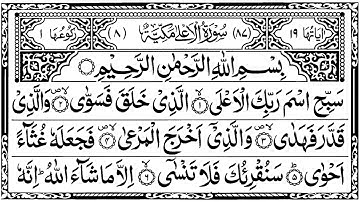 اٰیَاتُهَا ١٩ (٨٧) سُوْرَةُ الْاَعْلٰى مَكِّيَّةٌ (٨) رُكُوْعُهَا ١
بِسْمِ اللّٰهِ الرَّحْمٰنِ الرَّحِيْمِ
سَبِّحِ اسْمَ رَبِّكَ الْاَعْلَى ۙ﴿١﴾ الَّذِيْ خَلَقَ فَسَوّٰى ۙ﴿٢﴾ وَالَّذِيْ
قَدَّرَ فَهَدٰى ۙ﴿٣﴾ وَالَّذِيْٓ اَخْرَجَ الْمَرْعٰى ۙ﴿٤﴾ فَجَعَلَهٗ غُثَآءً
اَحْوٰى ؕ﴿٥﴾ سَنُقْرِئُكَ فَلَا تَنْسٰٓى ۙ﴿٦﴾ اِلَّا مَا شَآءَ اللّٰهُ ؕ اِنَّهٗ